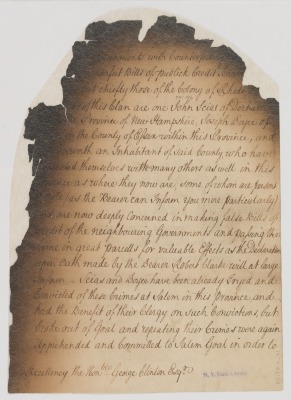 with Counterfeit
Bills of publick Credit
chiefly those of the Colony of Rhode
this Clan are one John
Province of New Hampshire, Joseph
the County of Essex within this Province, and
an Inhabitant of Said County who have
themselves with many others as well in this
as where they now are, some of whom are persons
as the Bearer can Inform you more particularly)
are now deeply concerned in making false Bills of
Credit of the neighbouring Governments and passing the
same in great parcells for valuable Effects as the Declaration
upon Oath made by the Bearer Robert Clark will at large
and have been already Tryed and
Convicted of these Crimes at Salem in this Province, and
had the Benefit of their Clergy on Such Convictions, but
out of Goal and repeating their Crimes were again
Apprehended and Committed to Salem Goal in order to
Excellency the Honble George Clinton Esqr